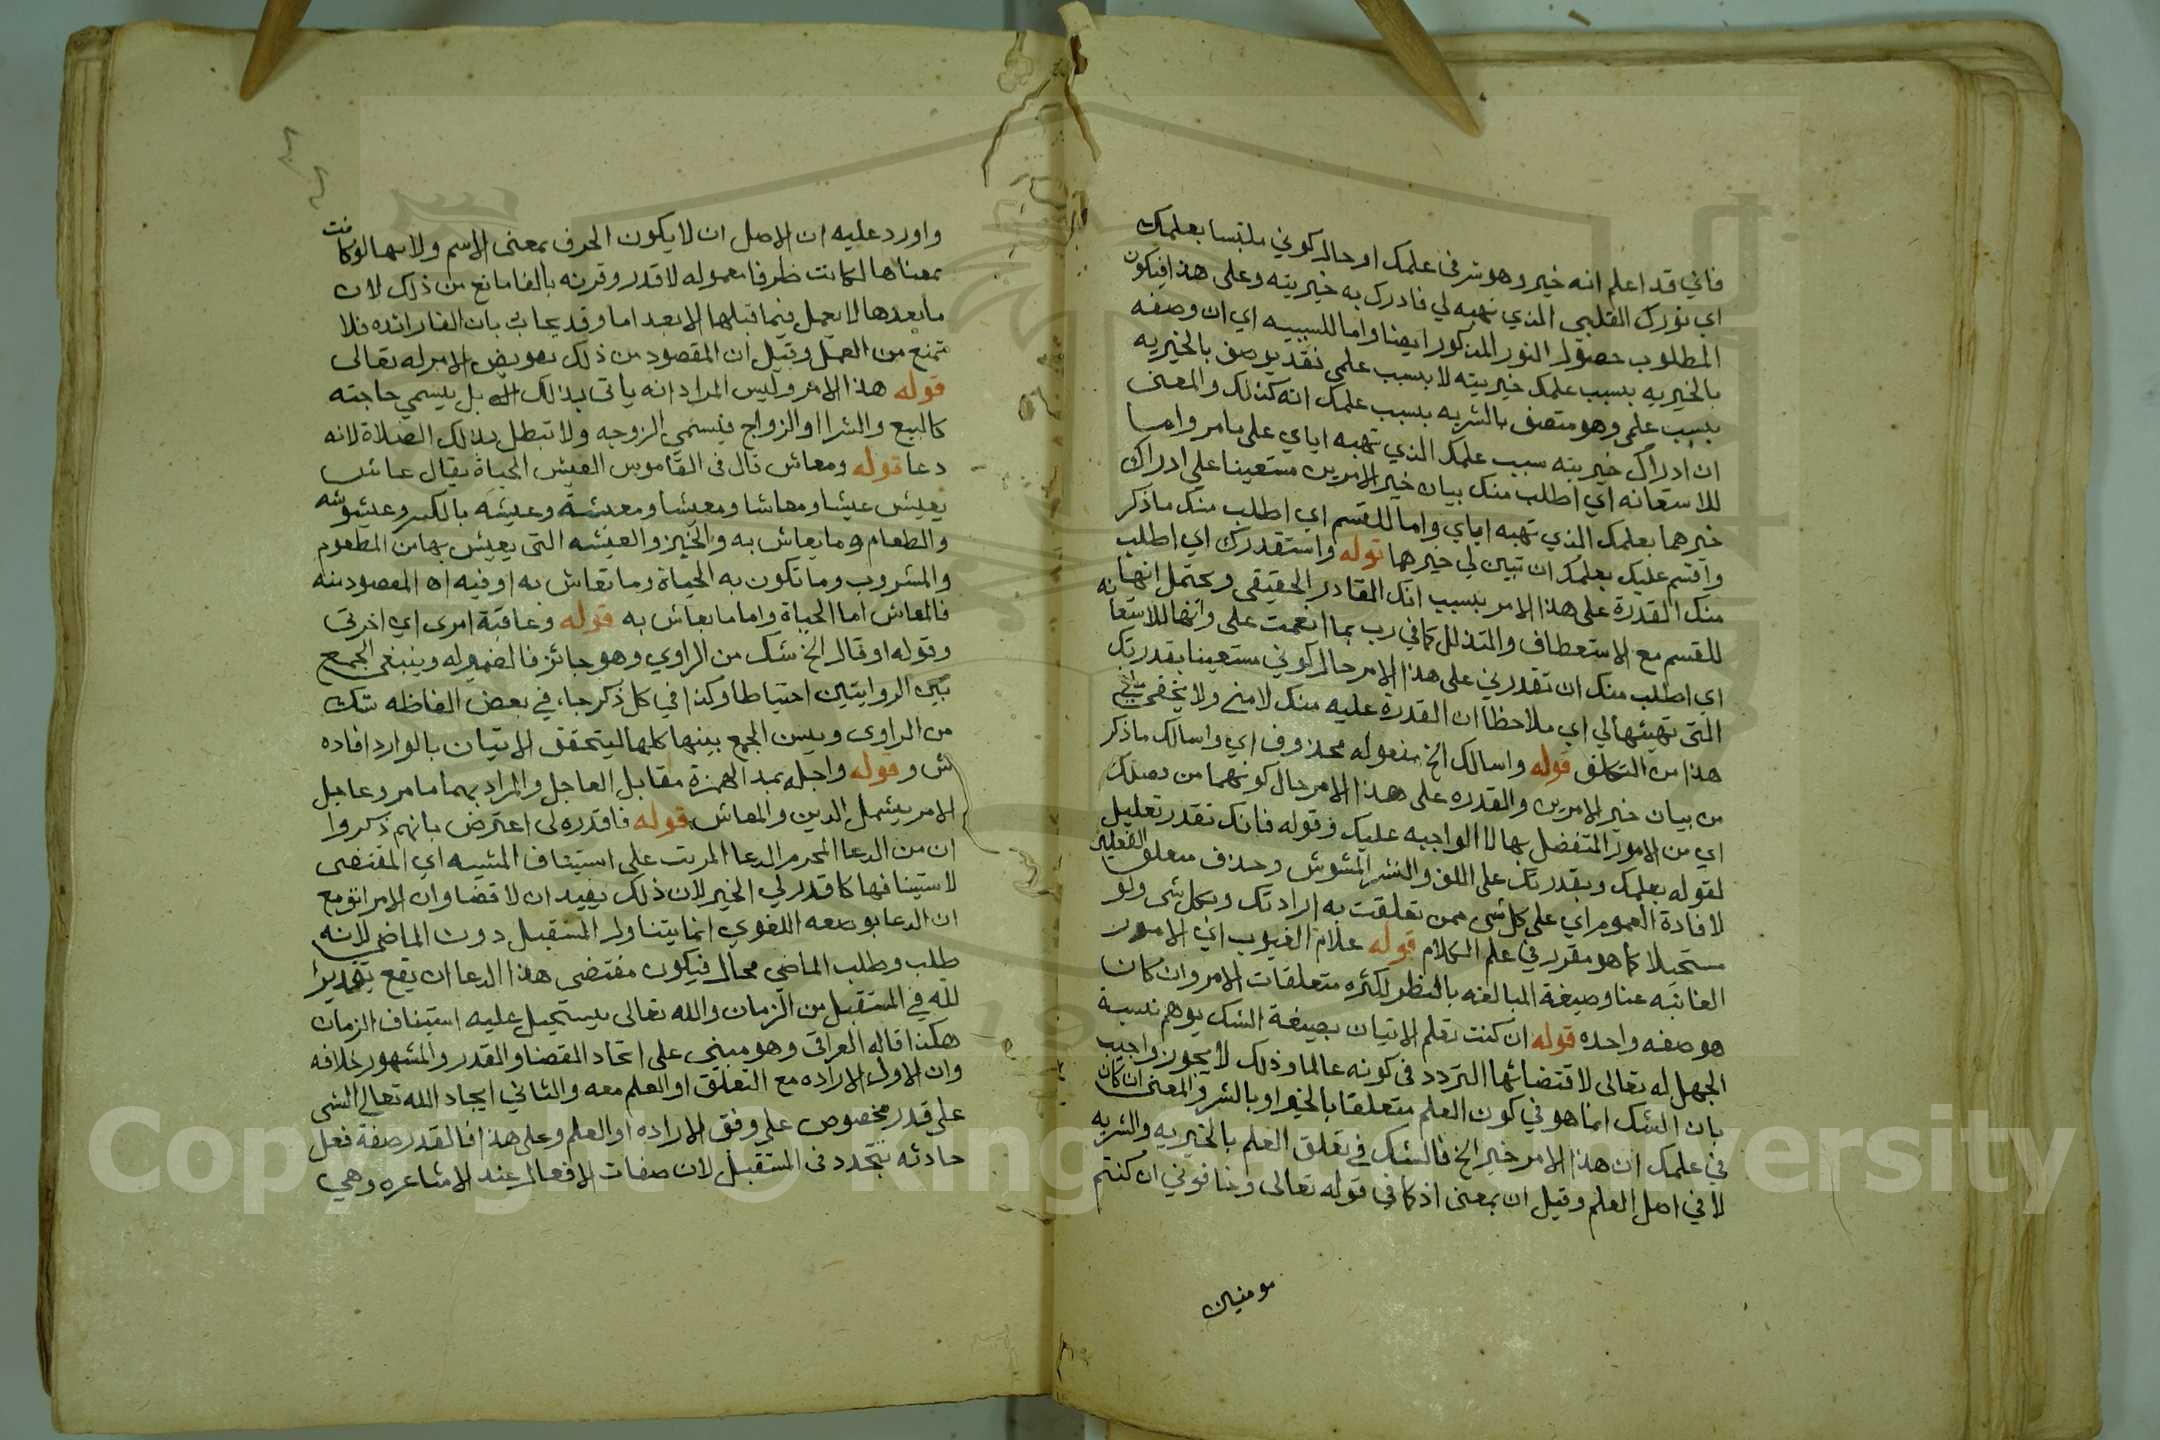 فاني قد اعلم انه خير وهو شر في علمك او حال كوني ملتبسا بعلمك
اي نورك القلبي الذي تهبه لي فادرك به خيريته وعلى هذا فيكون
المطلوب حصول النور المذكور ايضا واما للسببيه اي ان وصفه
بالخيريه بسبب علمك خيريته لا بسبب علمي فقد يوصف بالخيريه
بسبب علمي وهو متصف بالشريه بسبب علمك انه كذلك والمعنى
ان ادراك خيريته سبب علمك الذي تهبه اياي على ما مر واما
للاستعانه اي اطلب منك بيان خير الامرين مستعينا على ادراك
خيرهما بعلمك الذي تهبه اياي واما للقسم اي اطلب منك ماذكر
واقسم عليك بعلمك ان تبين لي خيرهما قوله واستقدرك اي اطلب
منك القدرة على هذا الامر بسبب انك القادر الحقيقي ويحتمل انها
للقسم مع الاستعطاف والتذلل كما في رب بما انعمت علي وانها للاستعانه
اي اطلب منك ان تقدرني على هذا الامر حال كوني مستعينا بقدرتك
التي تهيئها لي اي ملاحظا ان القدرة عليه منك لا مني ولا يخفى ما في
هذا من التكلف قوله واسالك الخ مفعوله محذوف اي واسالك ماذكر
من بيان خير الامرين والقدره على هذا الامر حال كونهما من فضلك
اي من الامور المتفضل بها لا الواجبه عليك وقوله فانك تقدر تعليل
لقوله بعلمك وبقدرتك على اللف والنشر المشوش وحذف متعلق الفعلين
لافادة العموم اي على كل شي ممن تعلقت به ارادتك وبكل شي ولو
مستحيلا كما هو مقرر في علم الكلام قوله علام الغيوب اي الامور
الغائبه عنا وصيغة المبالغه بالنظر لكثره متعلقات الامر وان كان
هو صفه واحده قوله ان كنت تعلم الاتيان بصيغة الشك يوهم نسبة
الجهل له تعالى لاقتضائها التردد في كونه عالما وذلك لا يجوز واجيب
بان الشك انما هو في كون العلم متعلقا بالخير او بالشر والمعنى ان كان
في علمك ان هذا الامر خير الخ فالشك في تعلق العلم بالخيريه والشريه
لا في اصل العلم وقيل ان بمعنى اذ كما في قوله تعالى وخافوني ان كنتم
مومنين
واورد عليه ان الاصل ان لا يكون الحرف بمعنى الاسم ولانها لو كانت
بمعناها لكانت ظرفا معموله لاقدر وقرنه بالفا مانع من ذلك لان
ما بعدها لا يعمل فيما قبلها الا بعد اما وقد يجاب بان الفا زائده فلا
تمنع من العمل وقيل ان المقصود من ذلك تفويض الامر له تعالى
قوله هذا الامر وليس المراد انه ياتي بذلك بل يسمي حاجته
كالبيع والشرا او الزواج فيسمي الزوجه ولا تبطل بذلك الصلاة لانه
دعا قوله ومعاش قال في القاموس العيش الحياة يقال عاش
يعيش عيشا ومعاشا ومعيشا ومعيشة وعيشه بالكسر وعيشوشه
والطعام وما يعاش به والخبز والعيشه التي يعيش بها من المطعوم
والمشروب وما تكون به الحياة وما تعاش به او فيه اه المقصود منه
فالمعاش اما الحياة واما ما يعاش به قوله وعاقبة امري اي اخرتي
وقوله او قال الخ شك من الراوي وهو جائز فالضمير له وينبغي الجمع
بين الروايتين احتياطا وكذا في كل ذكر جاء في بعض الفاظه شك
من الراوى ويسن الجمع بينها كلها ليتحقق الاتيان بالوارد افاده
ش وقوله واجله بمد الهمزة مقابل العاجل والمراد بهما ما مر وعاجل
الامر يشمل الدين والمعاش قوله فاقدره لي اعترض بانهم ذكروا
ان من الدعا المحرم الدعا المرتب على استيناف المشيه اي المقتضى
لاستينافها كاقدر لي الخير لان ذلك يفيد ان لا قضا وان الامر انف مع
ان الدعا بوضعه اللغوي انما يتناول المستقبل دون الماضي لانه
طلب وطلب الماضي محال فيكون مقتضى هذا الدعا ان يقع تقديرا
لله في المستقبل من الزمان والله تعالى يستحيل عليه استيناف الزمان
هكذا قاله العراقي وهو مبنى على اتحاد القضا والقدر والمشهور خلافه
وان الاول الاراده مع التعلق او العلم معه والثاني ايجاد الله تعالى الشي
على قدر مخصوص على وفق الاراده او العلم وعلى هذا فالقدر صفة فعل
حادثه تتجدد في المستقبل لان صفات الافعال عند الاشاعره وهي
Copyright © King Saud University